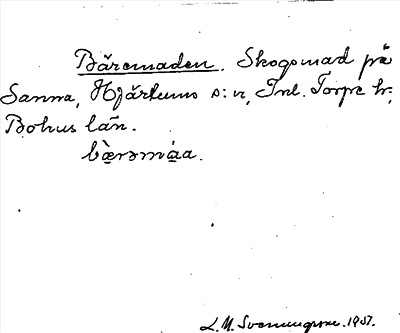 Bäremaden. Skogsmad på
Sanna, Hjärtums s:n, Inl. Torpe hr,
Bohus län.
bæ̀rəmáa.
L. M. Svenungsson. 1937.